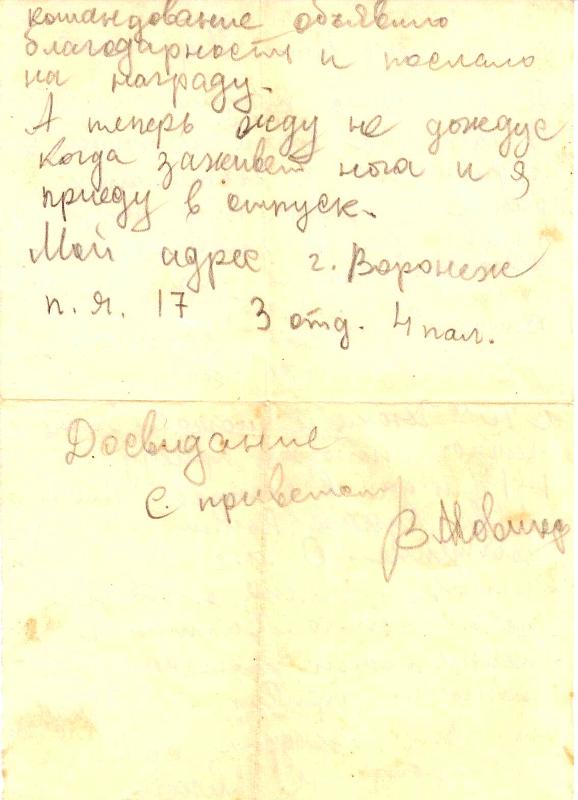 командование объявило
благодарность и послало
на награду.
А теперь жду не дождус
когда заживет нога и я
приеду в отпуск.
Мой адрес г. Воронеж
п. я. 17 3 отд. 4 пал.
Досвидание
С приветом
В